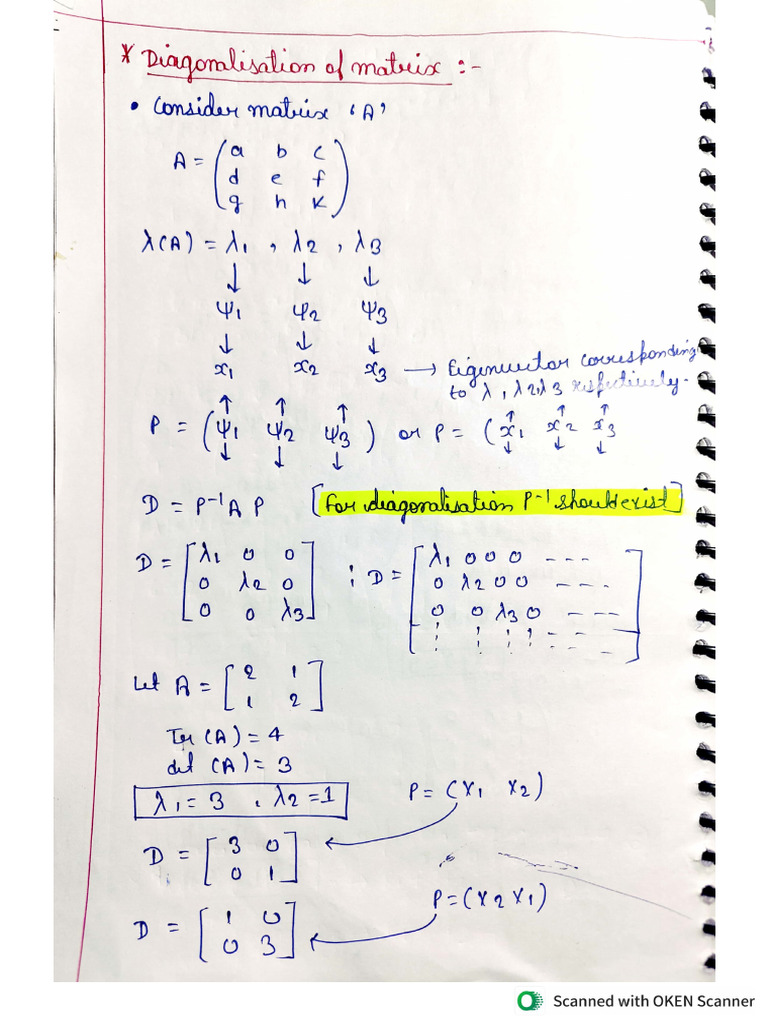 * Diagonalisation of matrix :-
• Consider matrix 'A'
A = (a b c
d e f
g h k)
λ(A) = λ1 , λ2 , λ3
↓ ↓ ↓
Ψ1 Ψ2 Ψ3
↓ ↓ ↓
x1 x2 x3 → Eigenvector corresponding
to λ1, λ2, λ3 respectively.
P = (Ψ1 Ψ2 Ψ3) or P = (x1 x2 x3
D = P⁻¹A P [For diagonalisation P⁻¹ should exist]
D = [λ1 0 0
0 λ2 0
0 0 λ3] ; D = [λ1 0 0 0 ---
0 λ2 0 0 ---
0 0 λ3 0 ---
⋮ ⋮ ⋮ ⋮ --]
Let A = [2 1
1 2]
Tr (A) = 4
det (A) = 3
λ1 = 3 , λ2 = 1
P = (x1 x2)
D = [3 0
0 1]
P = (x2 x1)
D = [1 0
0 3]
Scanned with OKEN Scanner